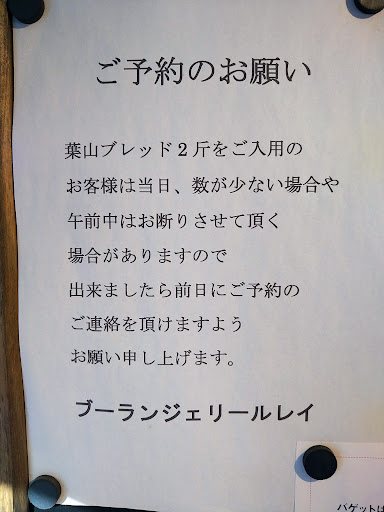 ご予約のお願い
葉山ブレッド２斤をご入用の
お客様は当日、数が少ない場合や
午前中はお断りさせて頂く
場合がありますので
出来ましたら前日にご予約の
ご連絡を頂けますよう
お願い申し上げます。
ブーランジェリールレイ
バゲットは